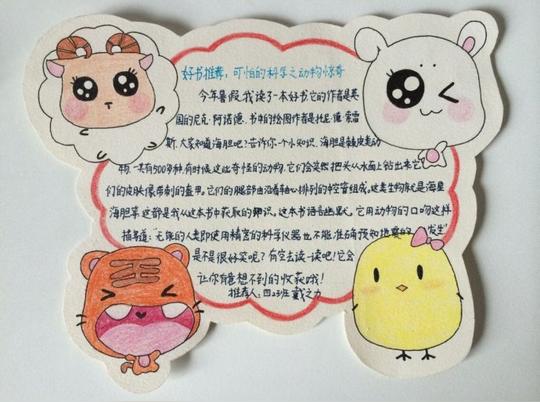 好书推荐，可怕的科学之动物惊奇
今年暑假，我读了一本好书它的作者是英
国的尼克·阿诺德。书中的绘图作者是托尼·德·索雷
斯，大家知道海胆吧？告诉你一个小知识，海胆是棘皮走动
物，一共有500多种，有时候这些奇怪的动物，它们会突然把头从水面上钻出来它
们的皮肤像带刺的盔甲。它们的腿部由沿着轴心排列的软管组成。这类生物家族就是海星
海胆等这都是我从这本书中获取的知识。这本书语言幽默，它用动物的口吻这样
描写道：“无聊的人类即使用精密的科学仪器也不能准确预知地震的 发生”
是不是很好笑呢？有空去读一读吧！它会
让你有意想不到的收获哦！
推荐人：四23班 戴之力